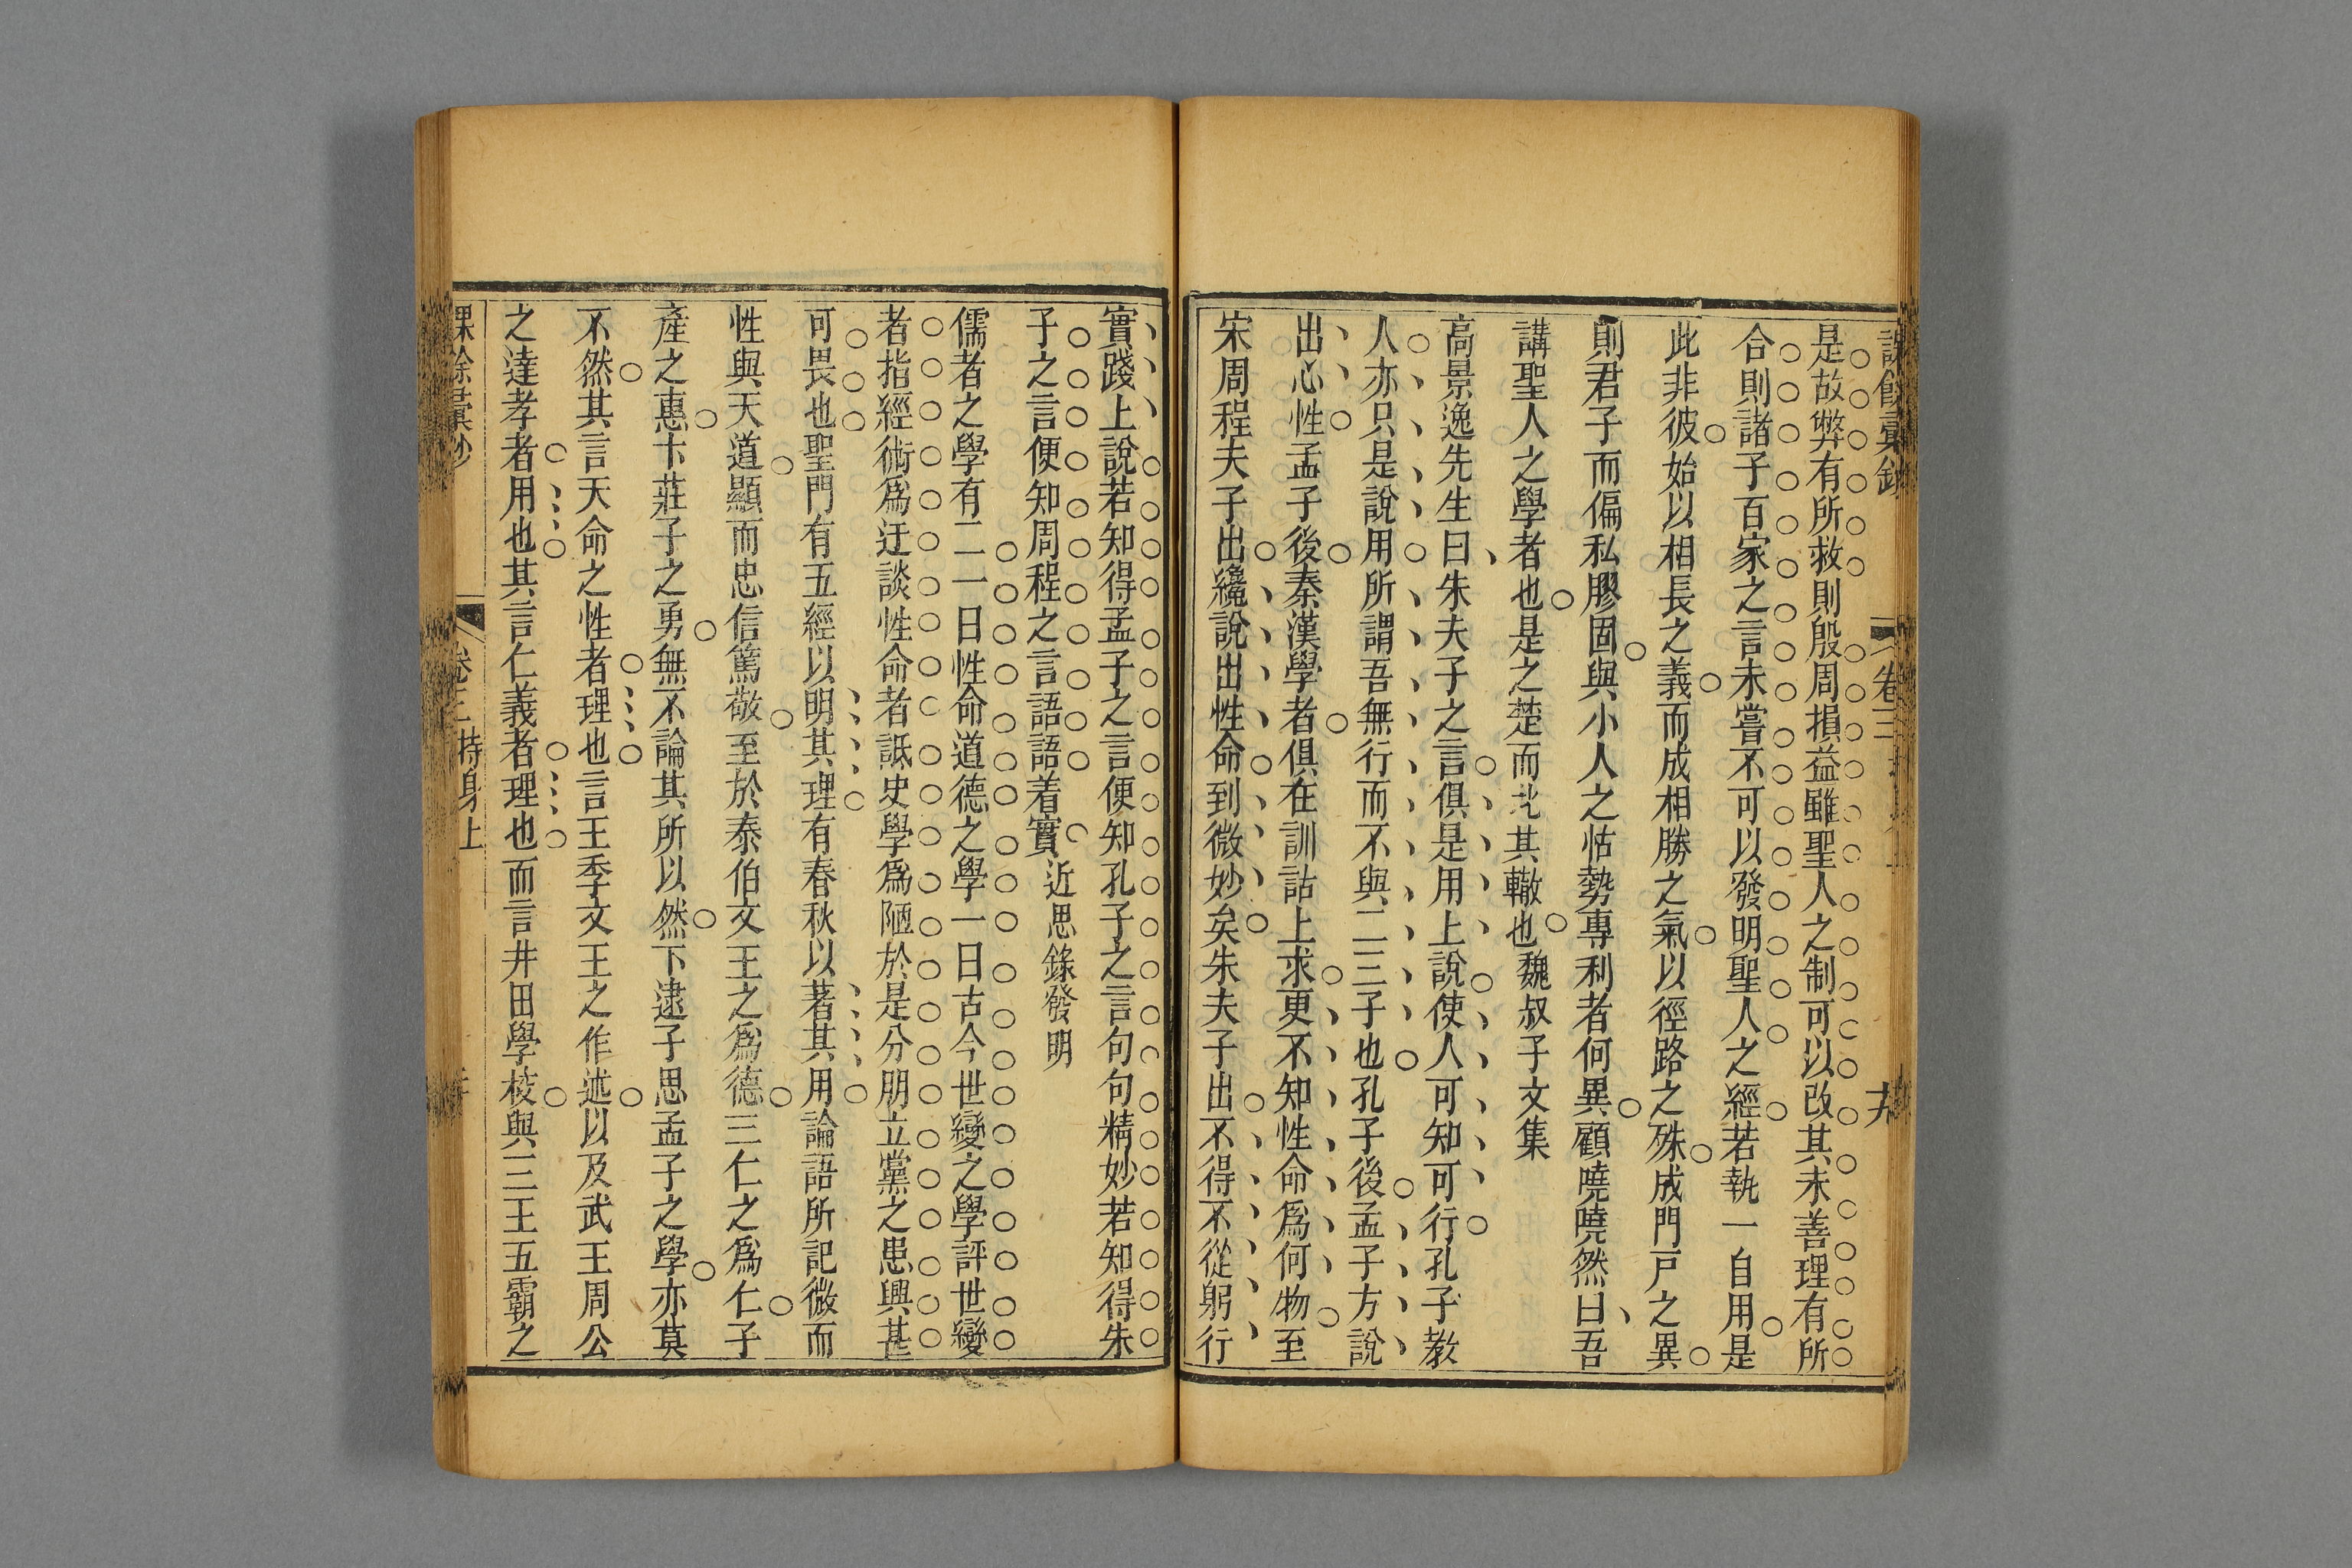 課餘彙鈔 卷三
是故弊有所救則殷周損益雖聖人之制可以改其未善理有所
合則諸子百家之言未嘗不可以發明聖人之經若執一自用是
此非彼始以相長之義而成相勝之氣以徑路之殊成門戸之異
則君子而偏私膠固與小人之怙勢專利者何異顧曉曉然曰吾
講聖人之學者也是之楚而北其轍也魏叔子文集
高景逸先生曰朱夫子之言俱是用上說使人可知可行孔子教
人亦只是說用所謂吾無行而不與二三子也孔子後孟子方說
出心性孟子後秦漢學者俱在訓詁上求更不知性命爲何物至
宋周程夫子出纔說出性命到微妙矣朱夫子出不得不從躬行
實踐上說若知得孟子之言便知孔子之言句句精妙若知得朱
子之言便知周程之言語語着實近思錄發明
儒者之學有二一曰性命道德之學一曰古今世變之學評世變
者指經術爲迂談性命者詆史學爲陋於是分朋立黨之患興甚
可畏也聖門有五經以明其理有春秋以著其用論語所記微而
性與天道顯而忠信篤敬至於泰伯文王之爲德三仁之爲仁子
產之惠卞莊子之勇無不論其所以然下逮子思孟子之學亦莫
不然其言天命之性者理也言王季文王之作述以及武王周公
之達孝者用也其言仁義者理也而言井田學校與三王五霸之
課餘彙鈔 卷三 持身上